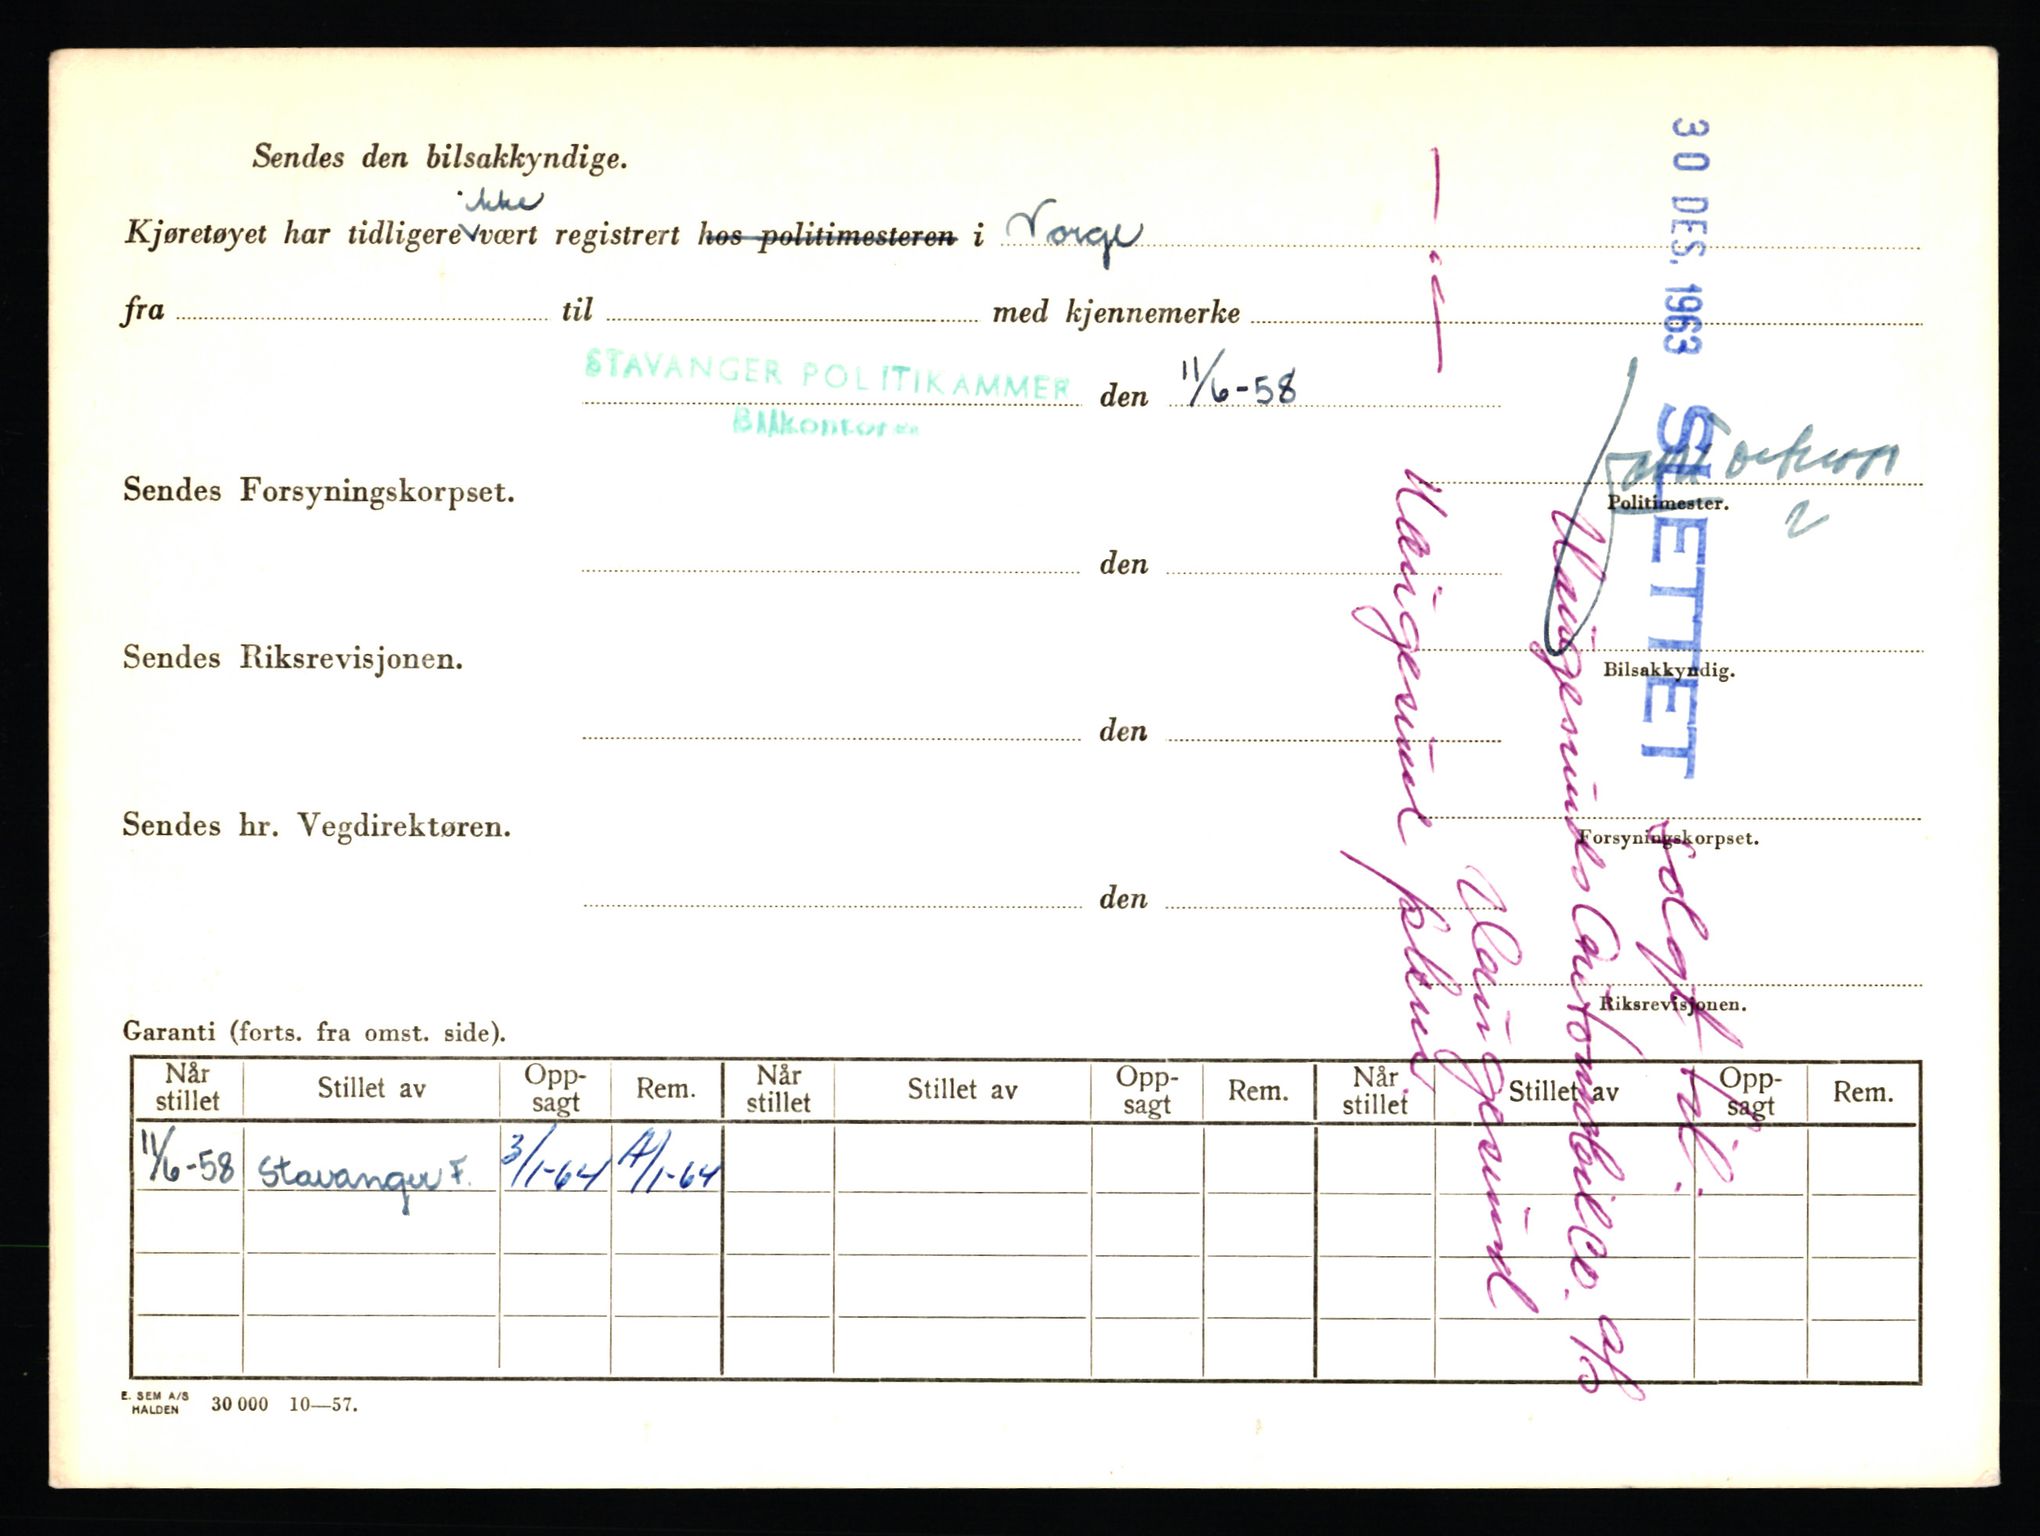 Sendes den bilsakkyndige.
ikke
Kjøretøyet har tidligere vært registrert hos politimesteren i Norge
fra til med kjennemerke
STAVANGER POLITIKAMMER den 11/6-58
Bilkontoret
Sendes Forsyningskorpset.
Politimester.
den
Sendes Riksrevisjonen.
Bilsakkyndig.
den
Sendes hr. Vegdirektøren.
Forsyningskorpset.
den
Riksrevisjonen.
Garanti (forts. fra omst. side).
Når stillet Stillet av Opp-sagt Rem. Når stillet Stillet av Opp-sagt Rem. Når stillet Stillet av Opp-sagt Rem.
11/6-58 Stavanger F. 3/1-64 /1-64
E. SEM A/S HALDEN 30 000 10—57.
30 DES. 1963 SLETTET Solgt til:
Haugesunds Automobilco. A/S
Haugesund
Haugesund